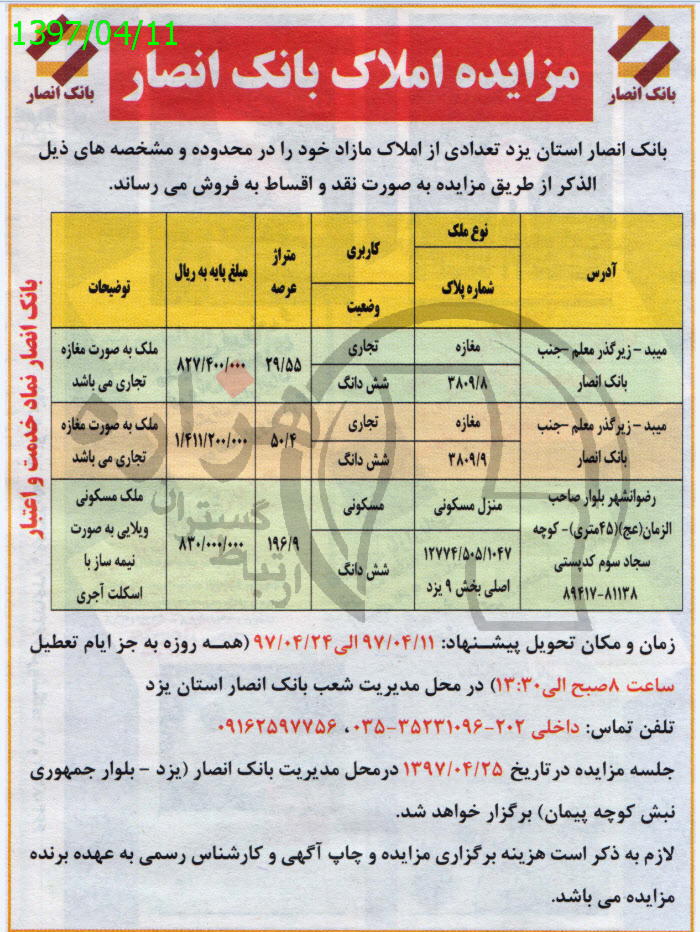 1397/04/11
بانک انصار
مزایده املاک بانک انصار
بانک انصار
بانک انصار استان یزد تعدادی از املاک مازاد خود را در محدوده و مشخصه های ذیل
الذکر از طریق مزایده به صورت نقد و اقساط به فروش می رساند.
آدرس
نوع ملک
شماره پلاک
کاربری
وضعیت
متراژ
عرصه
مبلغ پایه به ریال
توضیحات
میبد – زیرگذر معلم –جنب
بانک انصار
مغازه
۳۸۰۹/۸
تجاری
شش دانگ
۲۹/۵۵
۸۲۷/۴۰۰/۰۰۰
ملک به صورت مغازه
تجاری می باشد
میبد – زیرگذر معلم –جنب
بانک انصار
مغازه
۳۸۰۹/۹
تجاری
شش دانگ
۵۰/۴
۱/۴۱۱/۲۰۰/۰۰۰
ملک به صورت مغازه
تجاری می باشد
رضوانشهر بلوار صاحب
الزمان(عج)(۴۵متری)- کوچه
سجاد سوم کدپستی
۸۹۴۱۷-۸۱۱۳۸
منزل مسکونی
۱۲۷۷۴/۵۰۵/۱۰۴۷
اصلی بخش ۹ یزد
مسکونی
شش دانگ
۱۹۶/۹
۸۳۰/۰۰۰/۰۰۰
ملک مسکونی
ویلایی به صورت
نیمه ساز با
اسکلت آجری
بانک انصار نماد خدمت و اعتبار
هزاره
گستران
ارتباط
زمان و مکان تحویل پیشنهاد: ۹۷/۰۴/۱۱ الی ۹۷/۰۴/۲۴ (همه روزه به جز ایام تعطیل
ساعت ۸صبح الی۱۳:۳۰) در محل مدیریت شعب بانک انصار استان یزد
تلفن تماس: داخلی ۲۰۲-۳۵۲۳۱۰۹۶-۰۳۵، ۰۹۱۶۲۵۹۷۷۵۶
جلسه مزایده درتاریخ ۱۳۹۷/۰۴/۲۵ درمحل مدیریت بانک انصار (یزد – بلوار جمهوری
نبش کوچه پیمان) برگزار خواهد شد.
لازم به ذکر است هزینه برگزاری مزایده و چاپ آگهی و کارشناس رسمی به عهده برنده
مزایده می باشد.